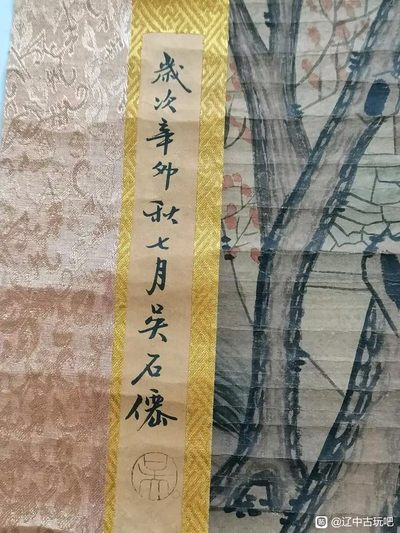 歲次辛卯秋七月吴石僊
@辽中古玩吧